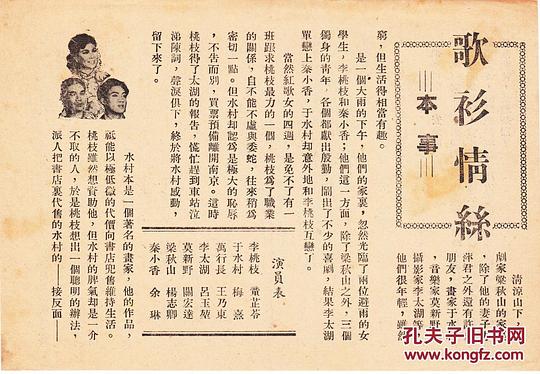 歌衫情絲
本事
清涼山下，
劇家梁秋山的家
，除了他的妻子
萍君之外還有許
朋友，畫家于水
，音樂家莫新野
攝影家李太湖等
他們很年輕，雖
窮，但生活得相當有趣。
是一個大雨的下午，他們的家裏，忽然光臨了兩位避雨的女
學生，李桃枝和秦小香；他們這一方面，除了梁秋山之外，三個
獨身的青年，各個都獻出殷勤，鬧出了不少的喜劇，結果李太湖
單戀上秦小香，于水村却意外地和李桃枝互戀了。
當然紅歌女的四週，是免不了有一
班跟求桃枝最力的一個，桃枝爲了職業
的關係，自不能不虛與委蛇，往來稍爲
密切一點。但水村却認爲是極大的恥辱
，不告而別，買票預備離開南京。這時
桃枝得了太湖的報告，慌忙趕到車站泣
涕陳詞，聲淚俱下，終於將水村感動，
留下來了。
演員表
李桃枝 董芷苓
于水村 梅熹
萬行長 王乃東
李太湖 呂玉堃
莫新野 關宏達
梁秋山 楊志卿
秦小香 余琳
水村本是一個著名的畫家，他的作品，
祗能以極低微的代價向書店兜售維持生活。
桃枝雖然想資助他，但水村的脾氣却是一介
不取的人，於是桃枝想出一個聰明的辦法，
派人把書店裏代售的水村的——接反面——
孔夫子旧书网
www.kongfz.com